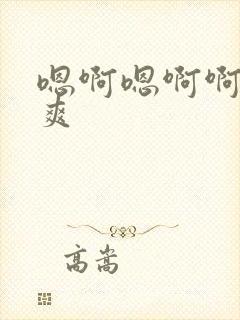 嗯啊嗯啊啊
爽
高嵩